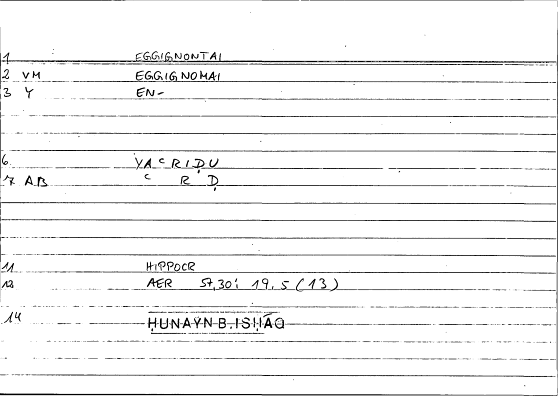 1 EGGIGNONTAI
2 VM EGGIGNOMAI
3 Y EN-
6 YAᶜRIḌU
7 AB ᶜ R Ḍ
11 HIPPOCR
12 AER 57,30: 19.5 (13)
14 ḤUNAYN B. ISḤĀQ